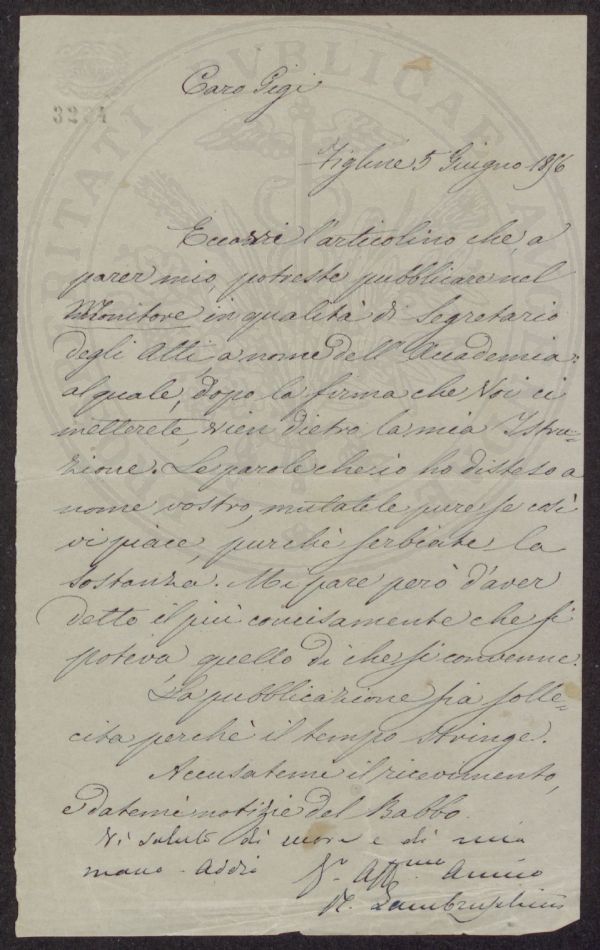 3264
Caro Gigi
Figline 5 Giugno 1856
Eccovi l'articolino che, a
parer mio, potreste pubblicare nel
Monitore in qualità di Segretario
degli Atti, a nome dell'Accademia:
al quale, dopo la firma che Voi ci
metterete, vien dietro la mia Istru=
zione. Le parole che io ho disteso a
nome vostro, mutatele pure se così
vi piace, purchè serbiate la
sostanza. Mi pare però d'aver
detto il più concisamente che si
poteva quello di che si convenne.
La pubblicazione sia solle=
cita perchè il tempo stringe.
Accusatemi il ricevimento,
e datemi notizie del Babbo.
Vi saluto di cuore e di mia
mano. Addio
Affmo Amico
R. Lambruschini